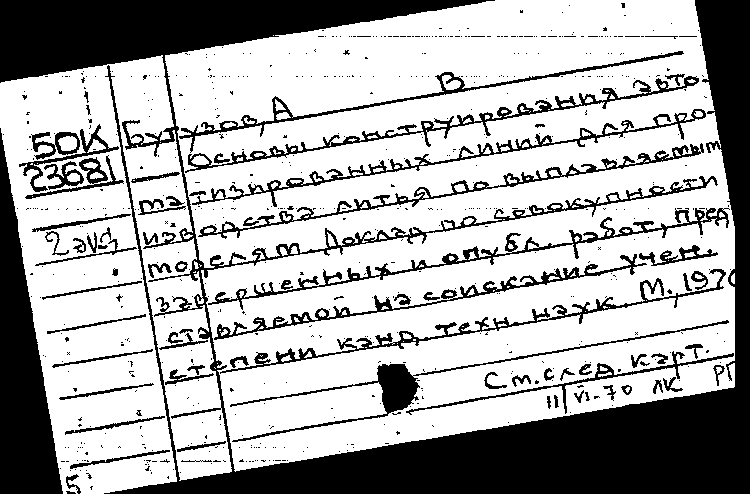 50К
23681
2 экз
Бутузов, А В
Основы конструирования авто-
матизированных линий для про-
изводства литья по выплавляемым
моделям. Доклад по совокупности
завершенных и опубл. работ, пред
ставляемой на соискание учен.
степени канд. техн. наук. М., 1970
См. след. карт.
11/VI-70 ЛК РГ
5